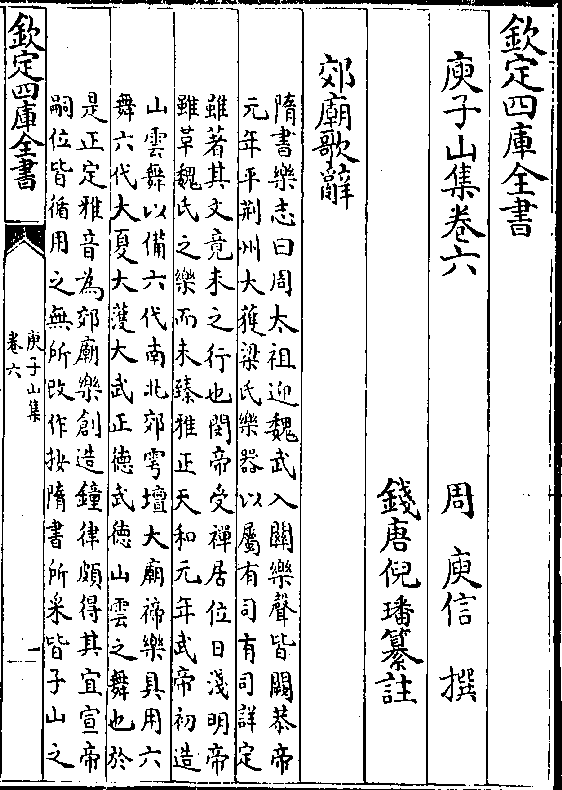 欽定四庫全書
庾子山集卷六
周 庾信 撰
錢唐倪璠纂註
郊廟歌辭
隋書樂志曰周太祖迎魏武入關樂聲皆闕恭帝
元年平荆州大獲梁氏樂器以屬有司有司詳定
雖著其文竟未之行也閔帝受禪居位日淺明帝
雖革魏氏之樂而未臻雅正天和元年武帝初造
山雲舞以備六代南北郊雩壇大廟禘樂具用六
舞六代大夏大濩大武正德武德山雲之舞也於
是正定雅音為郊廟樂創造鐘律頗得其宜宣帝
嗣位皆循用之無所改作按隋書所采皆子山之
欽定四庫全書
庾子山集
卷六
一